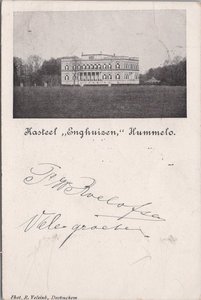 Kasteel „Enghuizen," Hummelo.
Roelofsen
Vele groeten
Phot. R. Velsink, Doetinchem